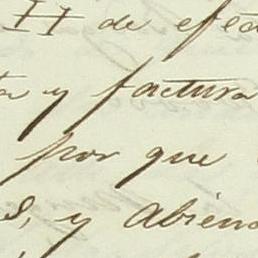 II de efec
ta y factura
por que
s, y abien